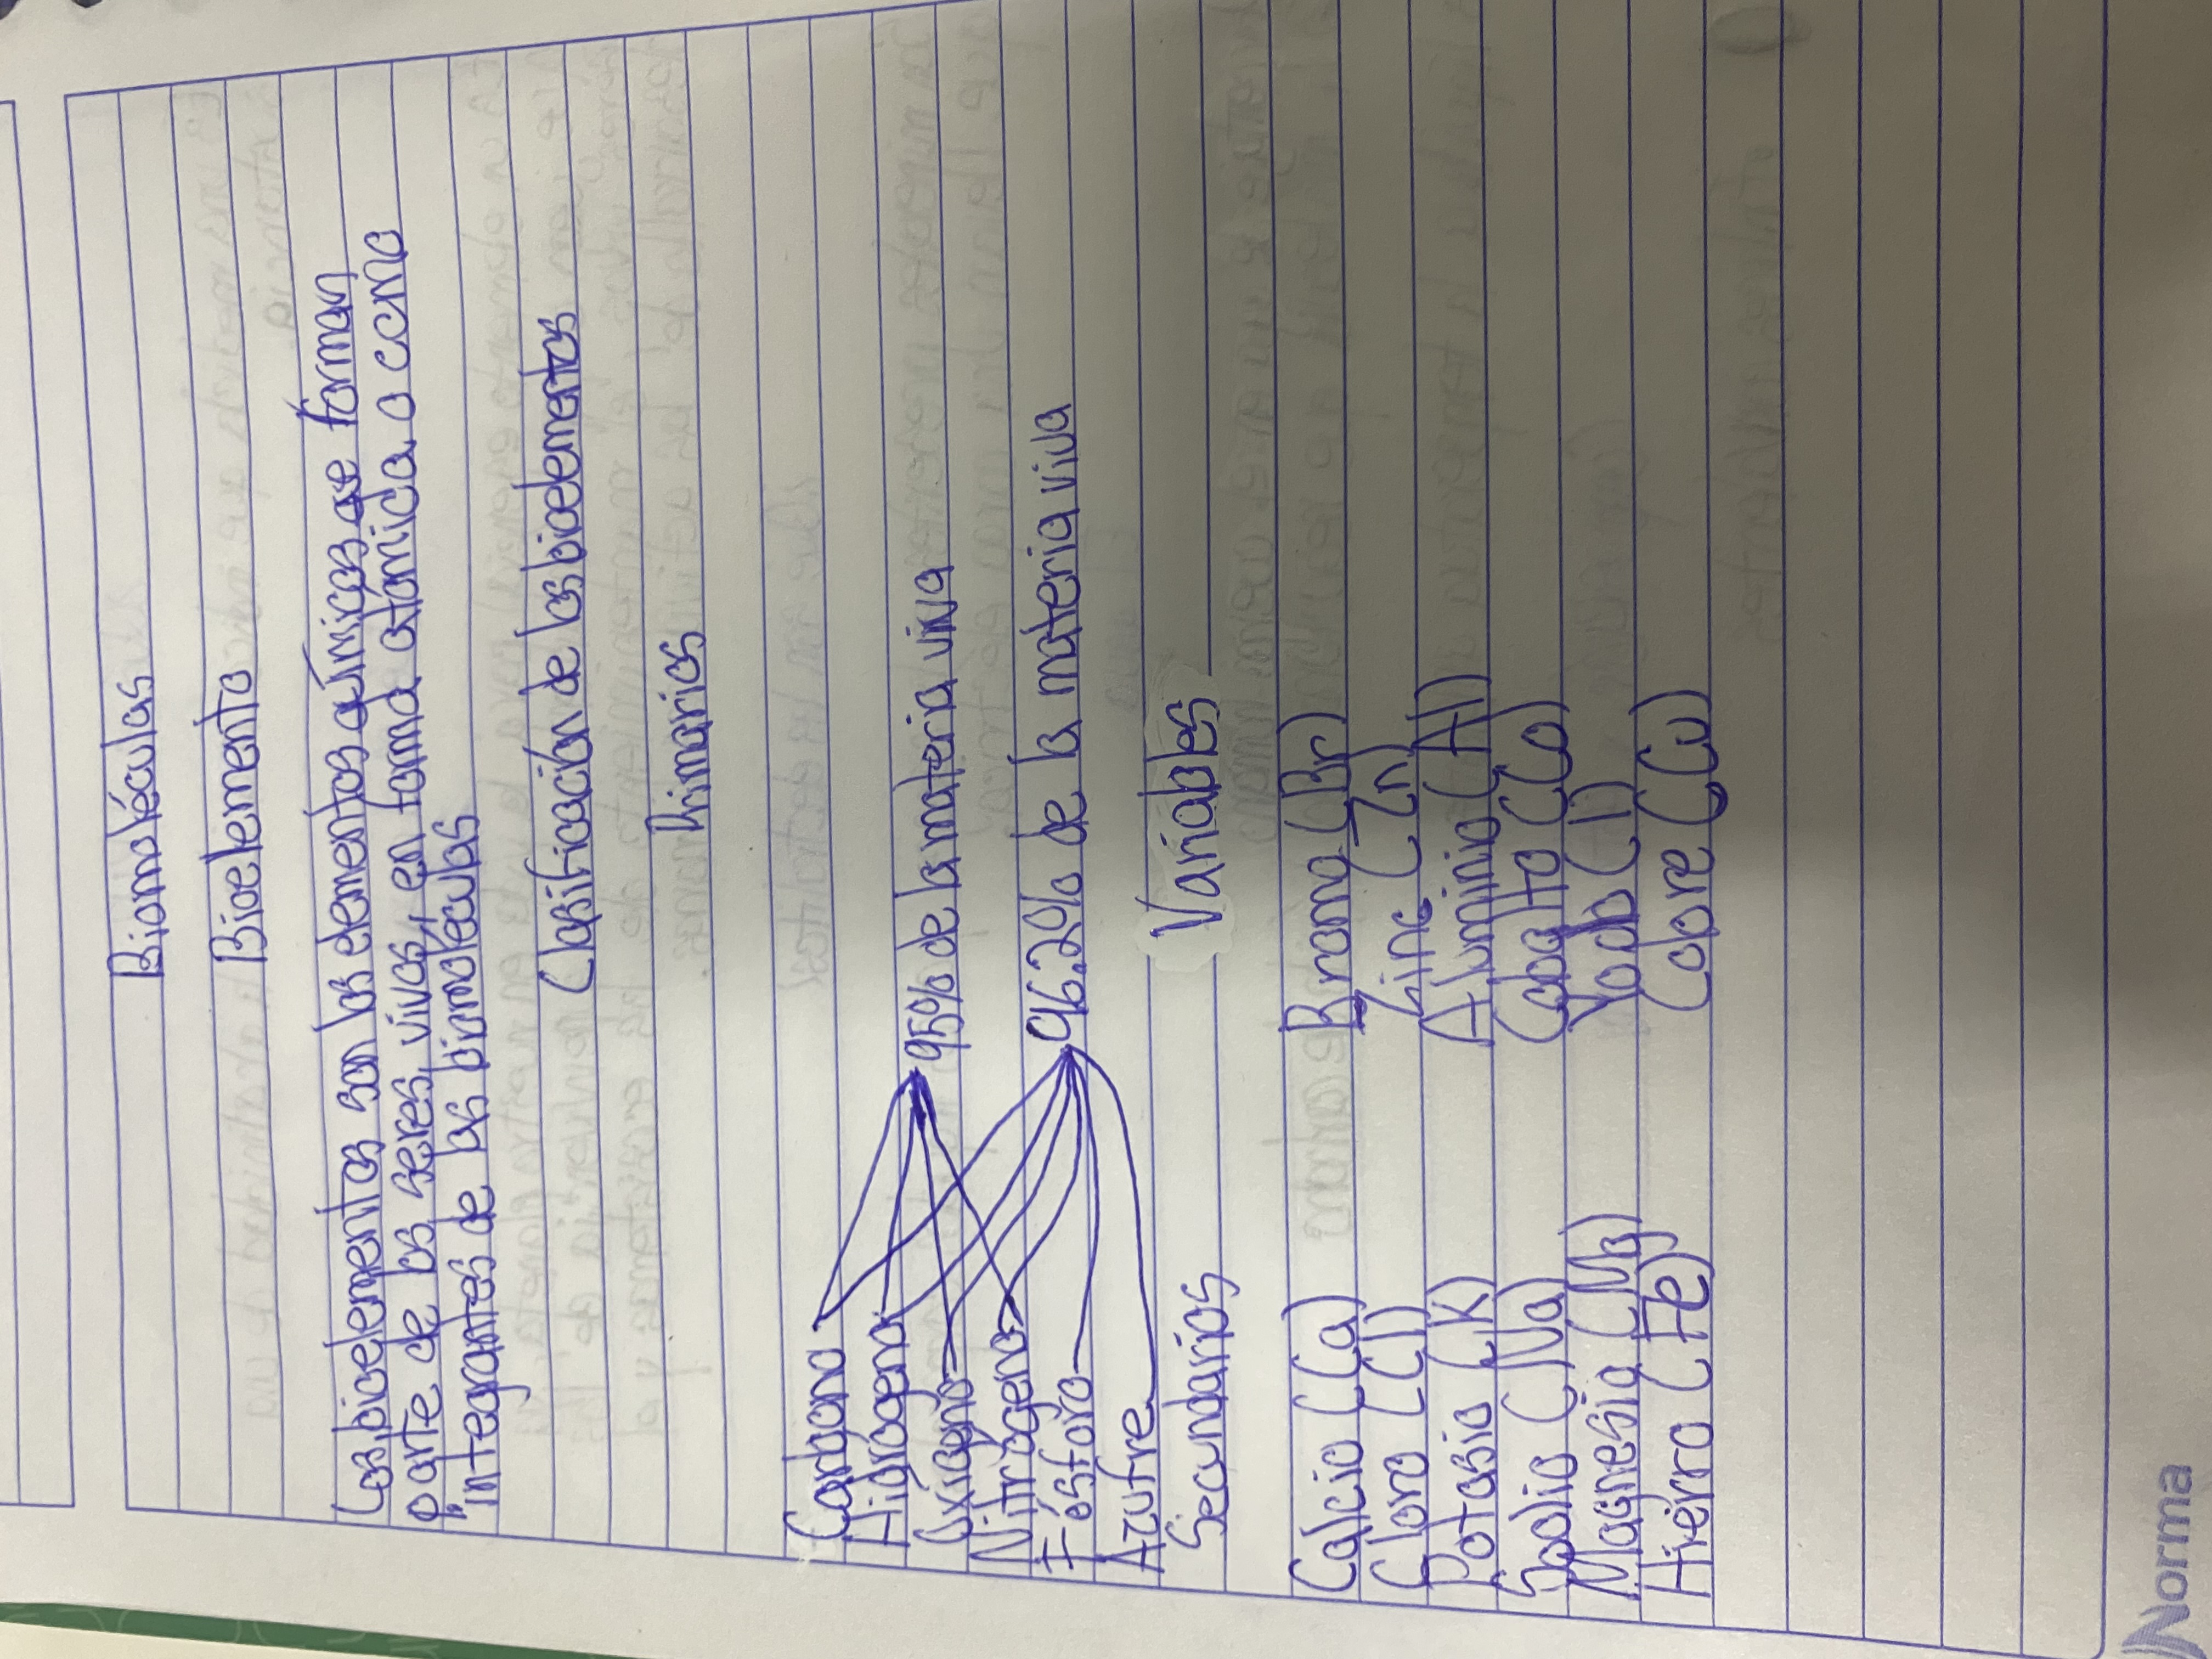 Biomoléculas
Bioelemento
Los bioelementos son los elementos químicos que forman
parte de los seres vivos, en forma atomica o como
integrantes de las biomoléculas
Clasificación de los bioelementos
Primarios
Carbono
Hidrógeno
Oxigeno 95% de la materia viva
Nitrógeno
Fósforo 96.2% de la materia viva
Azufre
Secundarios Variables
Calcio (Ca) Bromo (Br)
Cloro (Cl) Zinc (Zn)
Potasio (K) Aluminio (Al)
Sodio (Na) Cobalto (Co)
Magnesio (Mg) Yodo (I)
Hierro (Fe) Cobre (Cu)
Norma